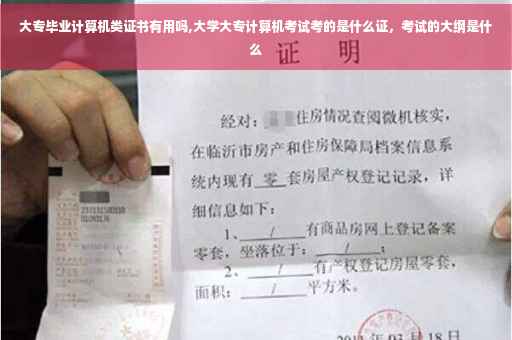 大专毕业计算机类证书有用吗,大学大专计算机考试考的是什么证，考试的大纲是什
么
证 明
经对：住房情况查阅微机核实，
在临沂市房产和住房保障局档案信息系
统内现有 零 套房屋产权登记记录，详
细信息如下：
1、 / 有商品房网上登记备案
零套，坐落位于： / ；
2、 / 有产权登记房屋零套，
面积： / 平方米。
03 月 18 日